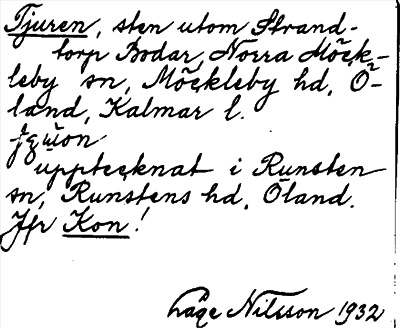 Tjuren, sten utom Strand-
torp Bodar, Norra Möck-
leby sn, Möckleby hd, Ö-
land, Kalmar l.
upptecknat i Runsten
sn, Runstens hd, Öland.
Jfr Kon!
Låge Nilsson 1932